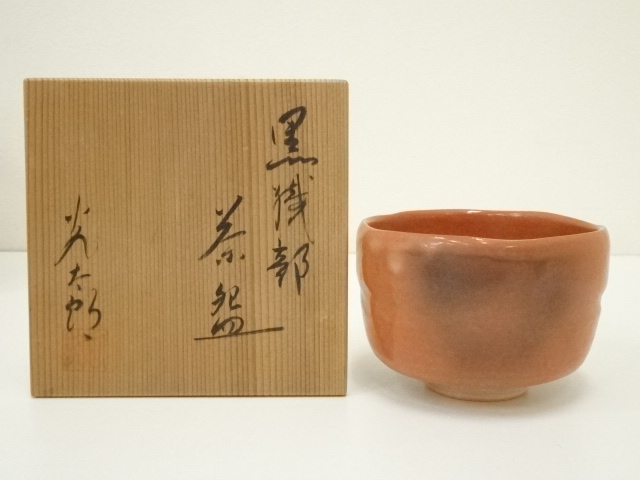 黒織部
茶盌
炎太郎